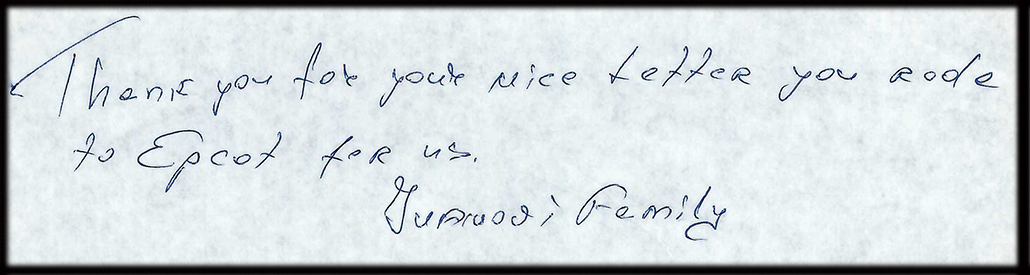 Thank you for your nice letter you rode
to Epcot for us.
Family